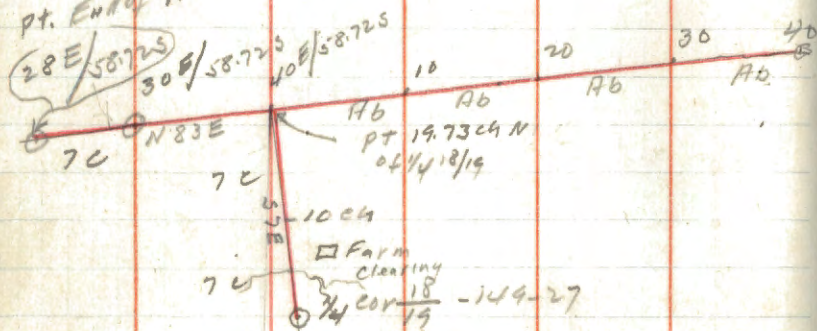 pt. End of
28E/58.72S
30E/58.72S
40E/58.72S
10
20
30
40
Ab
Ab
Ab
Ab
N.83E
7c
pt 19.73 ch N
of 1/4 18/19
7c
S7E
10 ch
Farm
Clearing
7c
1/4 cor 18/19 -149-27